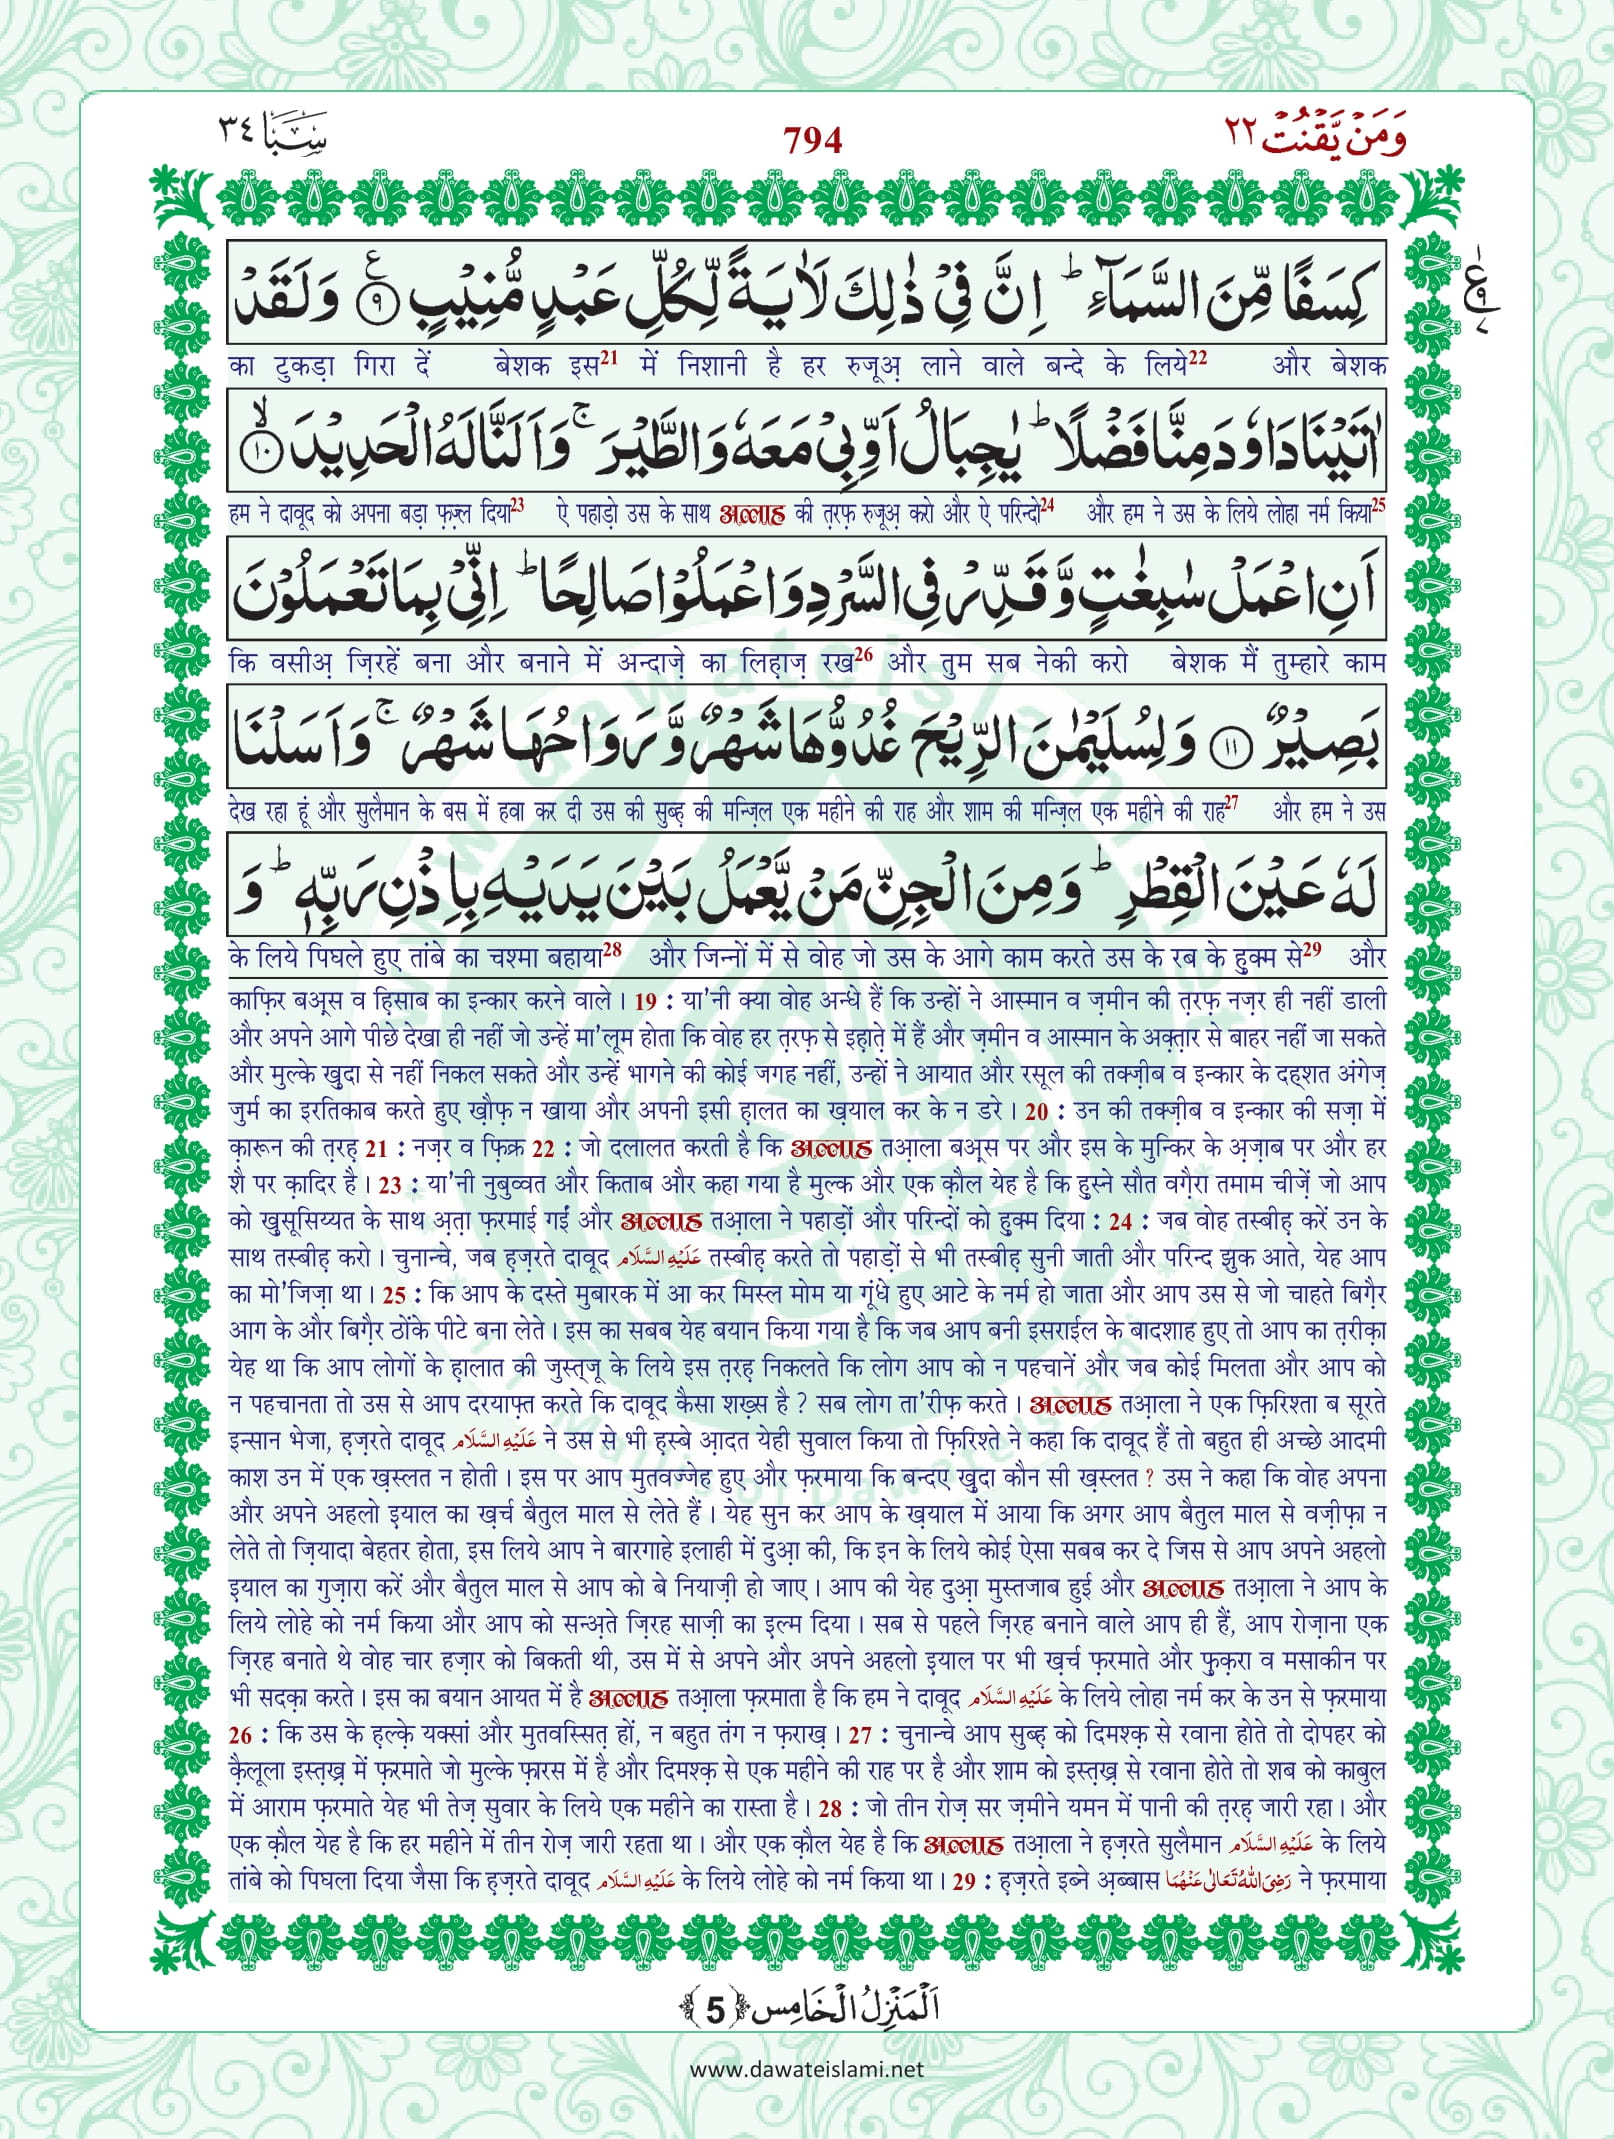 وَمَنۡ يَّقۡنُتۡ ٢٢
794
سَبَا ٣٤
كِسَفًا مِّنَ السَّمَآءِ ؕ اِنَّ فِیْ ذٰلِكَ لَاٰیَةً لِّكُلِّ عَبْدٍ مُّنِیْبٍ ۹ ع وَ لَقَدْ
का टुकड़ा गिरा दें बेशक इस21 में निशानी है हर रुजूअ़ लाने वाले बन्दे के लिये22 और बेशक
اٰتَیْنَا دَاوٗدَ مِنَّا فَضْلًا ؕ یٰجِبَالُ اَوِّبِیْ مَعَهٗ وَ الطَّیْرَ ۚ وَ اَلَنَّا لَهُ الْحَدِیْدَ ۙ ۱۰
हम ने दावूद को अपना बड़ा फ़ज़्ल दिया23 ऐ पहाड़ो उस के साथ अल्लाह की त़रफ़ रुजूअ़ करो और ऐ परिन्दो24 और हम ने उस के लिये लोहा नर्म किया25
اَنِ اعْمَلْ سٰبِغٰتٍ وَّ قَدِّرْ فِی السَّرْدِ وَ اعْمَلُوْا صَالِحًا ؕ اِنِّیْ بِمَا تَعْمَلُوْنَ
कि वसीअ़ ज़िरहें बना और बनाने में अन्दाज़े का लिह़ाज़ रख26 और तुम सब नेकी करो बेशक मैं तुम्हारे काम
بَصِیْرٌ ۱۱ وَ لِسُلَیْمٰنَ الرِّیْحَ غُدُوُّهَا شَهْرٌ وَّ رَوَاحُهَا شَهْرٌ ۚ وَ اَسَلْنَا
देख रहा हूं और सुलैमान के बस में हवा कर दी उस की सुब्ह़ की मन्ज़िल एक महीने की राह और शाम की मन्ज़िल एक महीने की राह27 और हम ने उस
لَهٗ عَیْنَ الْقِطْرِ ؕ وَ مِنَ الْجِنِّ مَنْ یَّعْمَلُ بَیْنَ یَدَیْهِ بِاِذْنِ رَبِّهٖ ؕ وَ
के लिये पिघले हुए तांबे का चश्मा बहाया28 और जिन्नों में से वोह जो उस के आगे काम करते उस के रब के हुक्म से29 और
काफ़िर बअ़्स व ह़िसाब का इन्कार करने वाले । 19 : या'नी क्या वोह अन्धे हैं कि उन्हों ने आस्मान व ज़मीन की त़रफ़ नज़र ही नहीं डाली
और अपने आगे पीछे देखा ही नहीं जो उन्हें मा'लूम होता कि वोह हर त़रफ़ से इह़ाते़ में हैं और ज़मीन व आस्मान के अक़्त़ार से बाहर नहीं जा सकते
और मुल्के खु़दा से नहीं निकल सकते और उन्हें भागने की कोई जगह नहीं, उन्हों ने आयात और रसूल की तक्ज़ीब व इन्कार के दह्शत अंगेज़
जुर्म का इरतिकाब करते हुए ख़ौफ़ न खाया और अपनी इसी ह़ालत का ख़याल कर के न डरे । 20 : उन की तक्ज़ीब व इन्कार की सज़ा में
क़ारून की त़रह़ 21 : नज़र व फ़िक्र 22 : जो दलालत करती है कि अल्लाह तआ़ला बअ़्स पर और इस के मुन्किर के अ़ज़ाब पर और हर
शै पर क़ादिर है । 23 : या'नी नुबुव्वत और किताब और कहा गया है मुल्क और एक क़ौल येह है कि हु़स्ने सौत वग़ैरा तमाम चीज़ें जो आप
को खु़सूसिय्यत के साथ अ़त़ा फ़रमाई गईं और अल्लाह तआ़ला ने पहाड़ों और परिन्दों को हु़क्म दिया : 24 : जब वोह तस्बीह़ करें उन के
साथ तस्बीह़ करो । चुनान्चे, जब ह़ज़रते दावूद عَلَیْهِ السَّلَام तस्बीह़ करते तो पहाड़ों से भी तस्बीह़ सुनी जाती और परिन्द झुक आते, येह आप
का मो'जिज़ा था । 25 : कि आप के दस्ते मुबारक में आ कर मिस्ल मोम या गूंधे हुए आटे के नर्म हो जाता और आप उस से जो चाहते बिग़ैर
आग के और बिग़ैर ठोंके पीटे बना लेते । इस का सबब येह बयान किया गया है कि जब आप बनी इसराईल के बादशाह हुए तो आप का त़रीक़ा
येह था कि आप लोगों के ह़ालात की जुस्त्जू के लिये इस त़रह़ निकलते कि लोग आप को न पहचानें और जब कोई मिलता और आप को
न पहचानता तो उस से आप दरयाफ़्त करते कि दावूद कैसा शख़्स है ? सब लोग ता'रीफ़ करते । अल्लाह तआ़ला ने एक फ़िरिश्ता ब सूरते
इन्सान भेजा, ह़ज़रते दावूद عَلَیْهِ السَّلَام ने उस से भी ह़स्बे आ़दत येही सुवाल किया तो फ़िरिश्ते ने कहा कि दावूद हैं तो बहुत ही अच्छे आदमी
काश उन में एक ख़स्लत न होती । इस पर आप मुतवज्जेह हुए और फ़रमाया कि बन्दए खु़दा कौन सी ख़स्लत ? उस ने कहा कि वोह अपना
और अपने अहलो इ़याल का ख़र्च बैतुल माल से लेते हैं । येह सुन कर आप के ख़याल में आया कि अगर आप बैतुल माल से वज़ीफ़ा न
लेते तो ज़ियादा बेहतर होता, इस लिये आप ने बारगाहे इलाही में दुआ़ की, कि इन के लिये कोई ऐसा सबब कर दे जिस से आप अपने अहलो
इ़याल का गुज़ारा करें और बैतुल माल से आप को बे नियाज़ी हो जाए । आप की येह दुआ़ मुस्तजाब हुई और अल्लाह तआ़ला ने आप के
लिये लोहे को नर्म किया और आप को सन्अ़ते ज़िरह साज़ी का इ़ल्म दिया । सब से पहले ज़िरह बनाने वाले आप ही हैं, आप रोज़ाना एक
ज़िरह बनाते थे वोह चार हज़ार को बिकती थी, उस में से अपने और अपने अहलो इ़याल पर भी ख़र्च फ़रमाते और फु़क़रा व मसाकीन पर
भी सदक़ा करते । इस का बयान आयत में है अल्लाह तआ़ला फ़रमाता है कि हम ने दावूद عَلَیْهِ السَّلَام के लिये लोहा नर्म कर के उन से फ़रमाया
26 : कि उस के ह़ल्क़े यक्सां और मुतवस्सित़ हों, न बहुत तंग न फ़राख़ । 27 : चुनान्चे आप सुब्ह़ को दिमश्क़ से रवाना होते तो दोपहर को
क़ैलूला इस्त़ख़्र में फ़रमाते जो मुल्के फ़ारस में है और दिमश्क़ से एक महीने की राह पर है और शाम को इस्त़ख़्र से रवाना होते तो शब को काबुल
में आराम फ़रमाते येह भी तेज़ सुवार के लिये एक महीने का रास्ता है । 28 : जो तीन रोज़ सर ज़मीने यमन में पानी की त़रह़ जारी रहा । और
एक क़ौल येह है कि हर महीने में तीन रोज़ जारी रहता था । और एक क़ौल येह है कि अल्लाह तआ़ला ने ह़ज़रते सुलैमान عَلَیْهِ السَّلَام के लिये
तांबे को पिघला दिया जैसा कि ह़ज़रते दावूद عَلَیْهِ السَّلَام के लिये लोहे को नर्म किया था । 29 : ह़ज़रते इब्ने अ़ब्बास رَضِیَ اللّٰهُ تَعَالٰی عَنْهُمَا ने फ़रमाया
اَلْمَنْزِلُ الْخَامِس ﴿5﴾
www.dawateislami.net